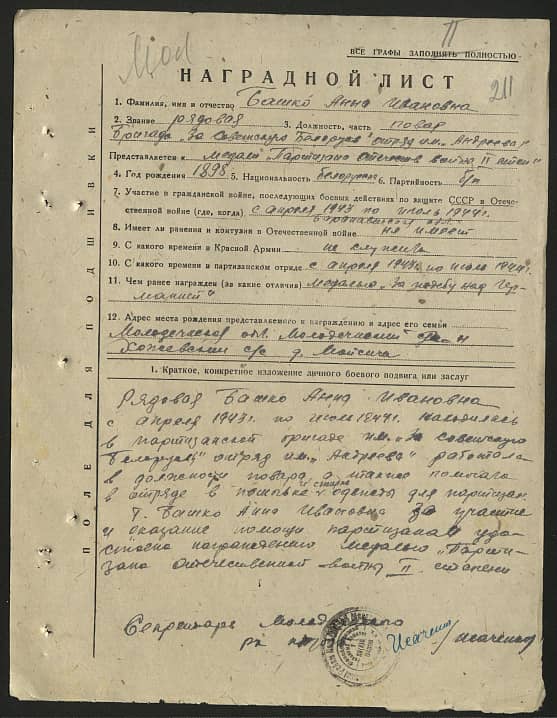 Мол
П
ВСЕ ГРАФЫ ЗАПОЛНЯТЬ ПОЛНОСТЬЮ
НАГРАДНОЙ ЛИСТ
211
1. Фамилия, имя и отчество Башко Анна Ивановна
2. Звание рядовая 3. Должность, часть повар
Бригада „За Советскую Белорусь" отряд им. Андреева
Представляется к медали „Партизано Отечествен войны II степени"
4. Год рождения 1898 5. Национальность белорусска 6. Партийность б/п
7. Участие в гражданской войне, последующих боевых действиях по защите СССР в Отече-
ственной войне (где, когда) с апреля 1943 по июль 1944г.
Барановичской обл.
8. Имеет ли ранения и контузии в Отечественной войне не имеет
9. С какого времени в Красной Армии не служила
10. С какого времени в партизанском отряде с апреля 1943г. по июль 1944г.
11. Чем ранее награжден (за какие отличия) медалью „За победу над Гер-
манией"
12. Адрес места рождения представляемого к награждению и адрес его семьи
Молодечненская обл. Молодечненский р-н
с/с д. Мойсичи
1. Краткое, конкретное изложение личного боевого подвига или заслуг
Рядовая Башко Анна Ивановна
с апреля 1943г. по июль 1944г. находилась
в партизанской бригаде им. „За советскую
Белорусь" отряд им. „Андреева" работала
в должности повара а также помогала
и стирке
в отряде в пошивке одежды для партизан.
Т. Башко Анна Ивановна за участие
и оказание помощи партизанам удо-
стоена награждению медалью „Парти-
зано Отечественной войны II степени
Секретарь Молодечненского
рк Исаченко /Исаченко/
ПОЛЕ ДЛЯ ПОДШИВКИ